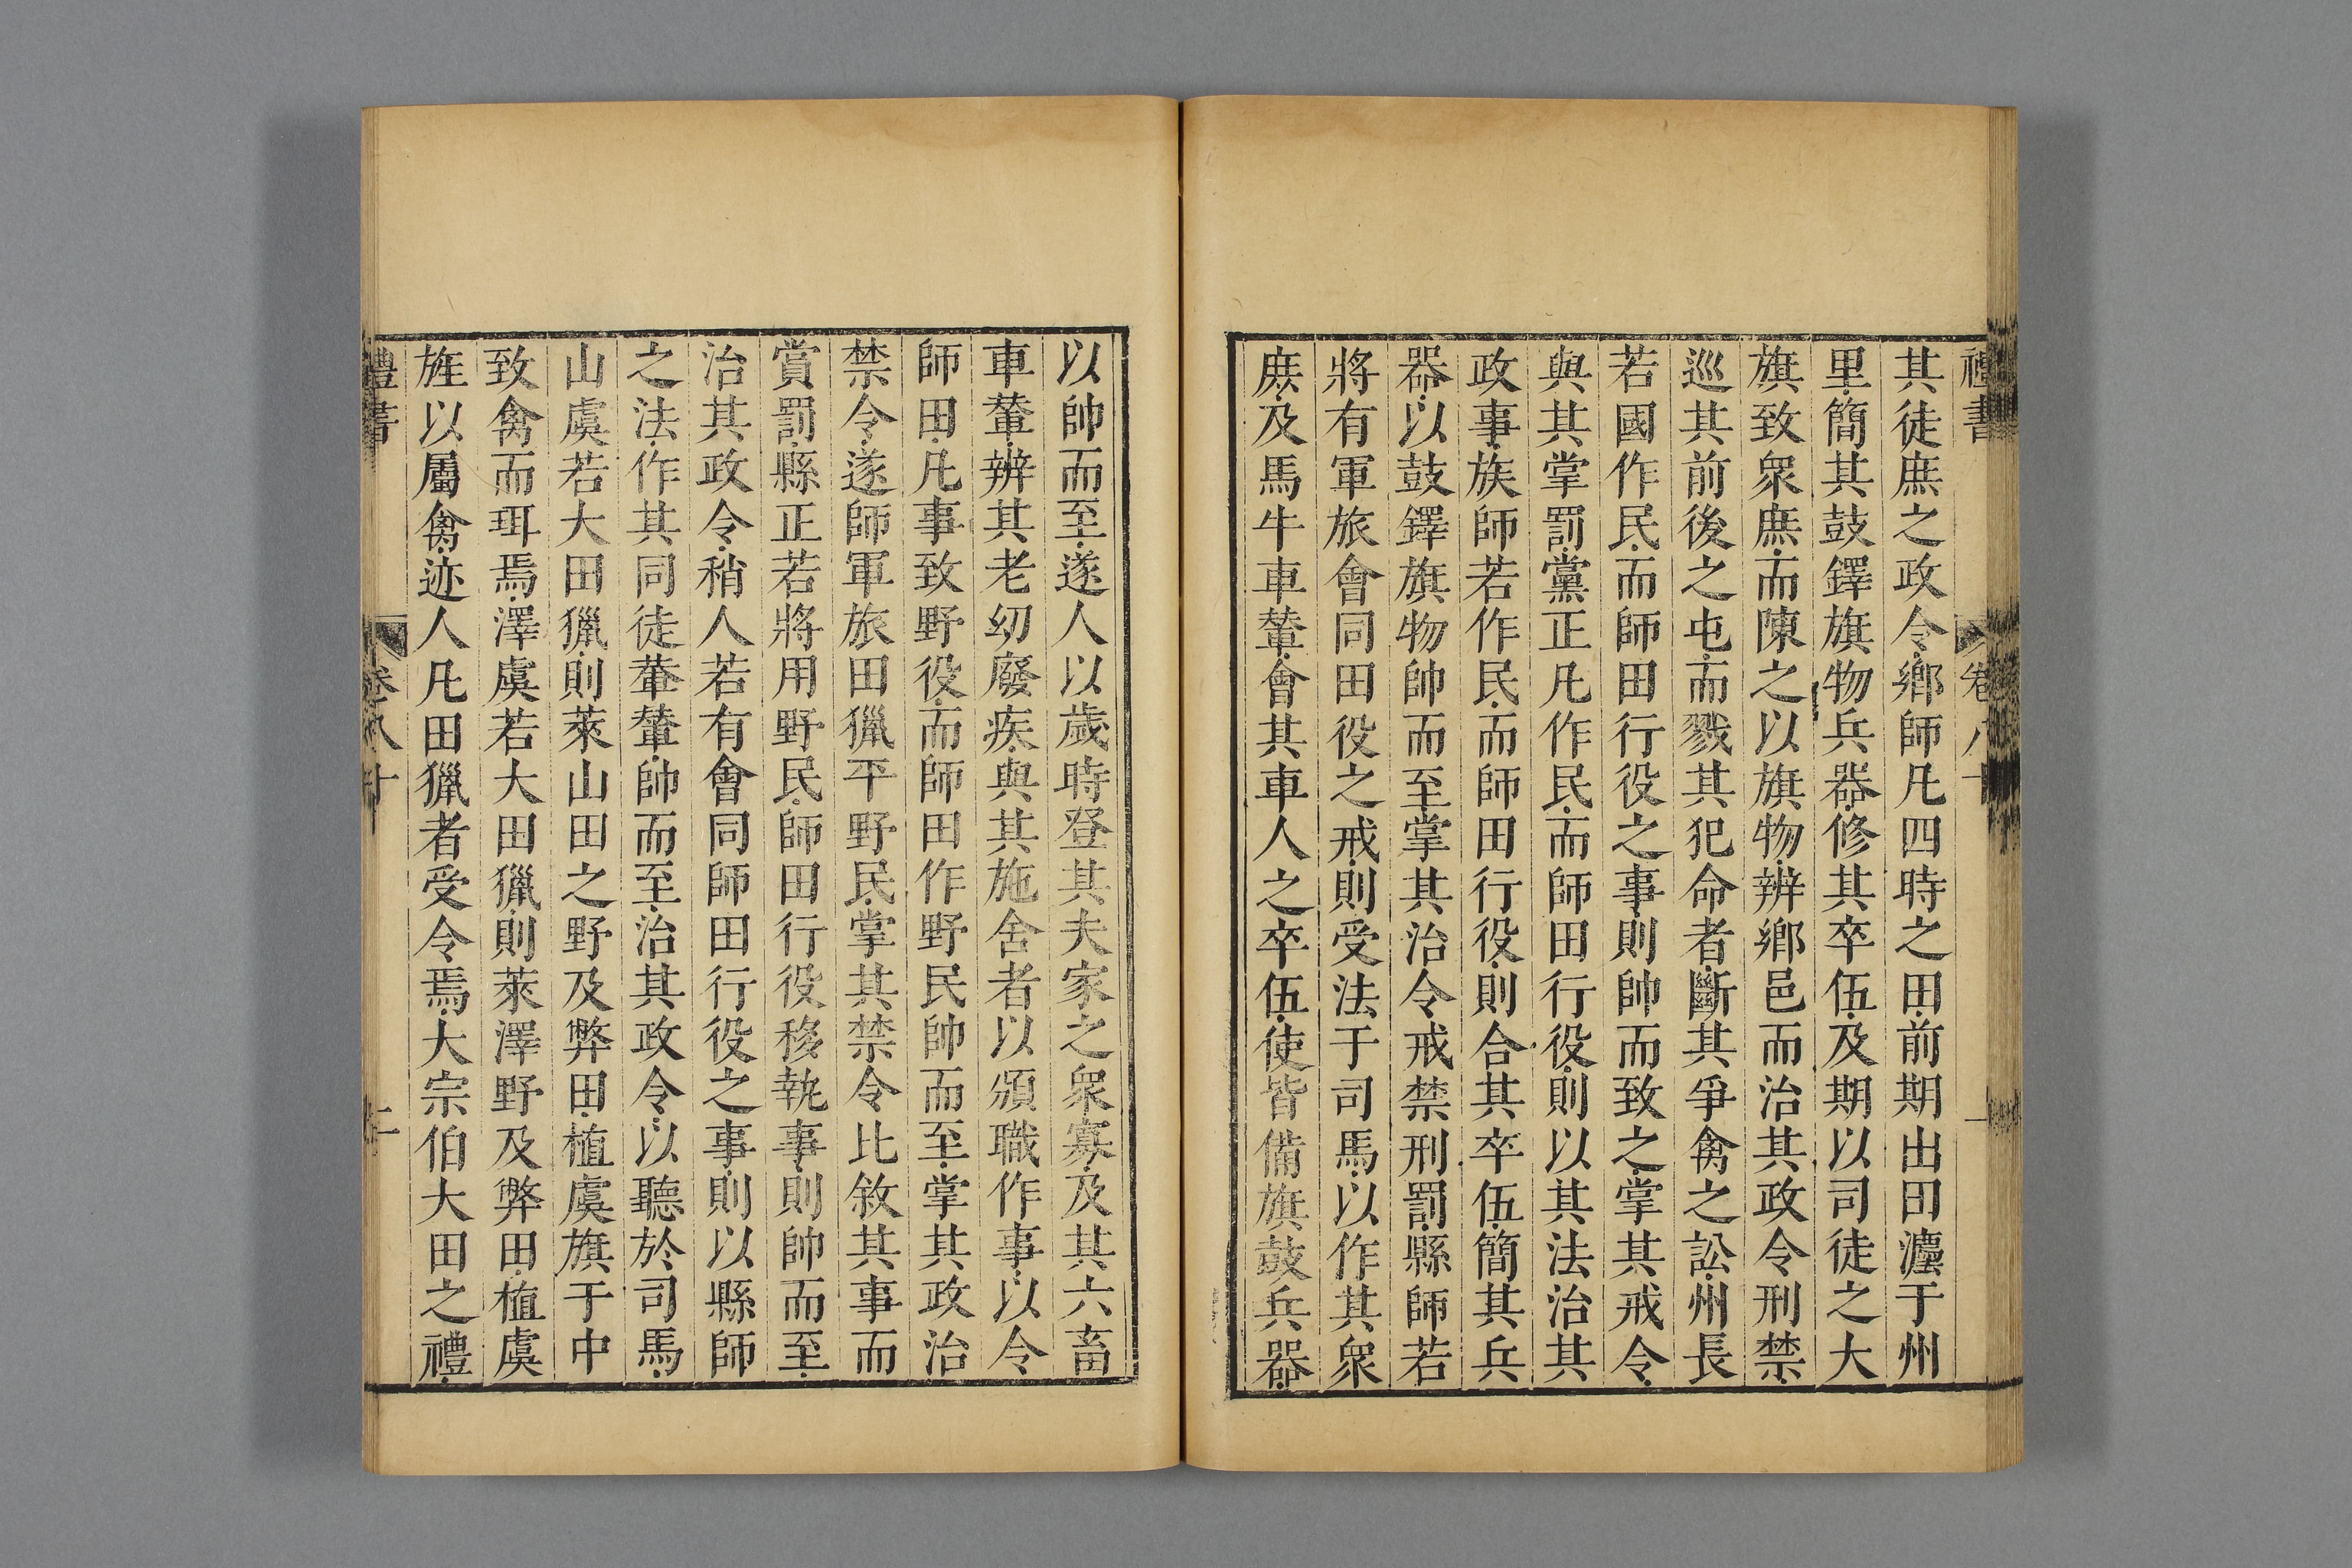 禮書
卷八十
一
其徒庶之政令鄉師凡四時之田前期出田灋于州
里簡其鼓鐸旗物兵器修其卒伍及期以司徒之大
旗致衆庶而陳之以旗物辨鄉邑而治其政令刑禁
巡其前後之屯而戮其犯命者斷其爭禽之訟州長
若國作民而師田行役之事則帥而致之掌其戒令
與其掌罰黨正凡作民而師田行役則以其法治其
政事族師若作民而師田行役則合其卒伍簡其兵
器以鼓鐸旗物帥而至掌其治令戒禁刑罰縣師若
將有軍旅會同田役之戒則受法于司馬以作其衆
庶及馬牛車輦會其車人之卒伍使皆備旗鼓兵器
以帥而至遂人以歲時登其夫家之衆寡及其六畜
車輦辨其老幼廢疾與其施舍者以頒職作事以令
師田凡事致野役而師田作野民帥而至掌其政治
禁令遂師軍旅田獵平野民掌其禁令比敘其事而
賞罰縣正若將用野民師田行役移執事則帥而至
治其政令稍人若有會同師田行役之事則以縣師
之法作其同徒輂輦帥而至治其政令以聽於司馬
山虞若大田獵則萊山田之野及弊田植虞旗于中
致禽而珥焉澤虞若大田獵則萊澤野及弊田植虞
旌以屬禽迹人凡田獵者受令焉大宗伯大田之禮
禮書
卷八十
二